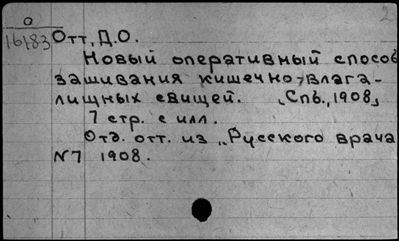 О
16183 Отт, Д.О.
Новый оперативный способ
зашивания кишечно-влага-
лищных свищей. [Спб., 1908]
7 стр. с илл.
Отд. отт. из „Русского врача
N7 1908.
2